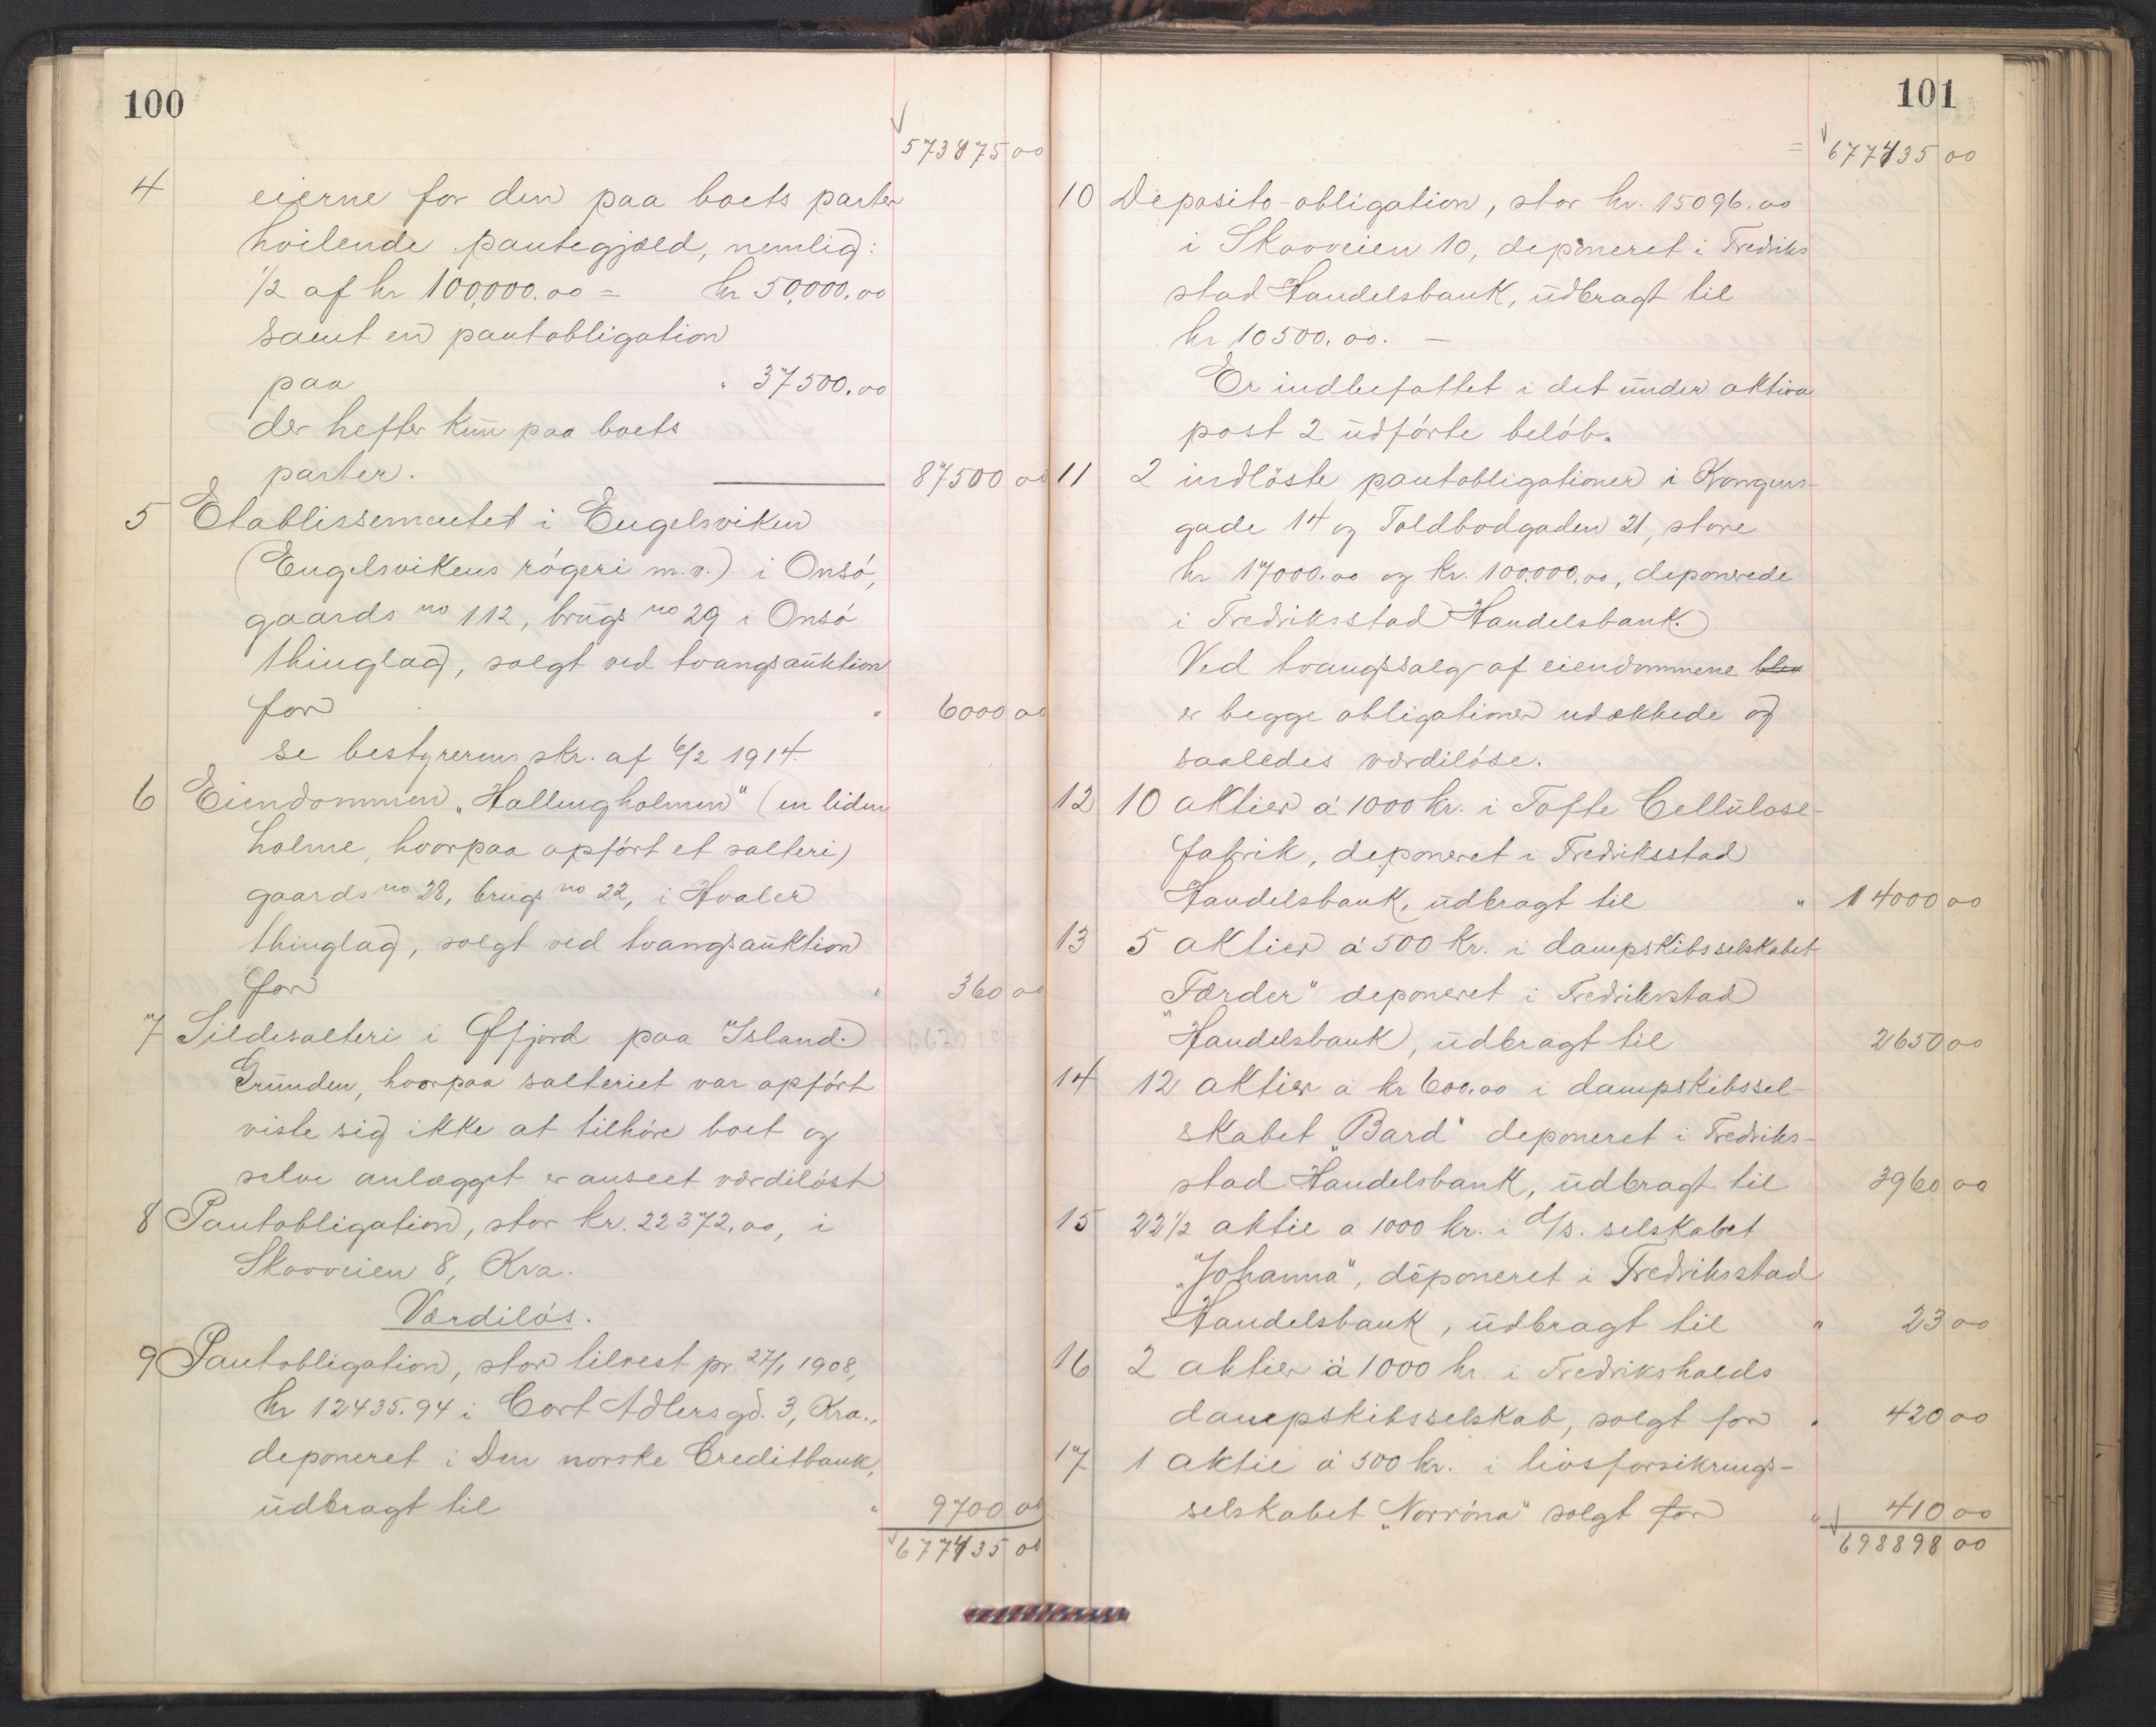 100
573875 00
4 eierne for den paa boets parter
hvilende pantegjæld, nemlig:
1/2 af kr 100,000.00 = kr 50,000.00
samt en pantobligation
paa " 37500.00
der hefter kun paa boets
parter. 87500 00
5 Etablissementet i Engelsviken
(Engelsvikens røgeri m.v.) i Onsø,
gaards no 112, brugs no 29 i Onsø
thinglag, solgt ved tvangsauktion
for " 6000 00
se bestyrerens skr. af 6/2 1914.
6 Eiendommen "Hallingholmen" (en liden
holme, hvorpaa opført et salteri)
gaards no 28, brugs no 22, i Hvaler
thinglag, solgt ved tvangsauktion
for " 360 00
7 Sildesalteri i Øfjord paa Island.
Grunden, hvorpaa salteriet var opført
viste sig ikke at tilhøre boet og
selve anlægget er anseet værdiløst
8 Pantobligation, stor kr. 22372.00, i
Skovveien 8, Kra.
Værdiløs.
9 Pantobligation, stor tilrest pr. 27/1 1908,
kr 12435.94 i Cort Adlers gd. 3, Kra.,
deponeret i Den norske Creditbank,
udbragt til " 9700 00
677435 00
101
= 677435 00
10 Deposito-obligation, stor kr. 15096.00
i Skovveien 10, deponeret i Fredriks
stad Handelsbank, udbragt til
kr 10500.00. —
Er indbefattet i det under aktiva
post 2 udførte beløb.
11 2 indløste pantobligationer i Kongens-
gade 14 og Toldbodgaden 21, store
kr 17000.00 og kr. 100.000.00, deponerede
i Fredriksstad Handelsbank.
Ved tvangssalg af eiendommene blev
er begge obligationer udækkede og
saaledes værdiløse.
12 10 aktier á 1000 kr. i Tofte Cellulose-
fabrik, deponeret i Fredriksstad
Handelsbank, udbragt til " 14000 00
13 5 aktier á 500 kr. i dampskibsselskabet
"Færder" deponeret i Fredriksstad
Handelsbank, udbragt til 2650 00
14 12 aktier a kr 600.00 i dampskibssel-
skabet "Bard" deponeret i Fredriks-
stad Handelsbank, udbragt til 3960 00
15 22 1/2 aktie a 1000 kr. i d/s. selskabet
"Johanna", deponeret i Fredriksstad
Handelsbank, udbragt til " 23 00
16 2 aktier á 1000 kr. i Fredrikshalds
dampskibsselskab, solgt for " 420 00
17 1 aktie á 500 kr. i livsforsikrings-
selskabet "Norröna" solgt for " 410 00
698898 00